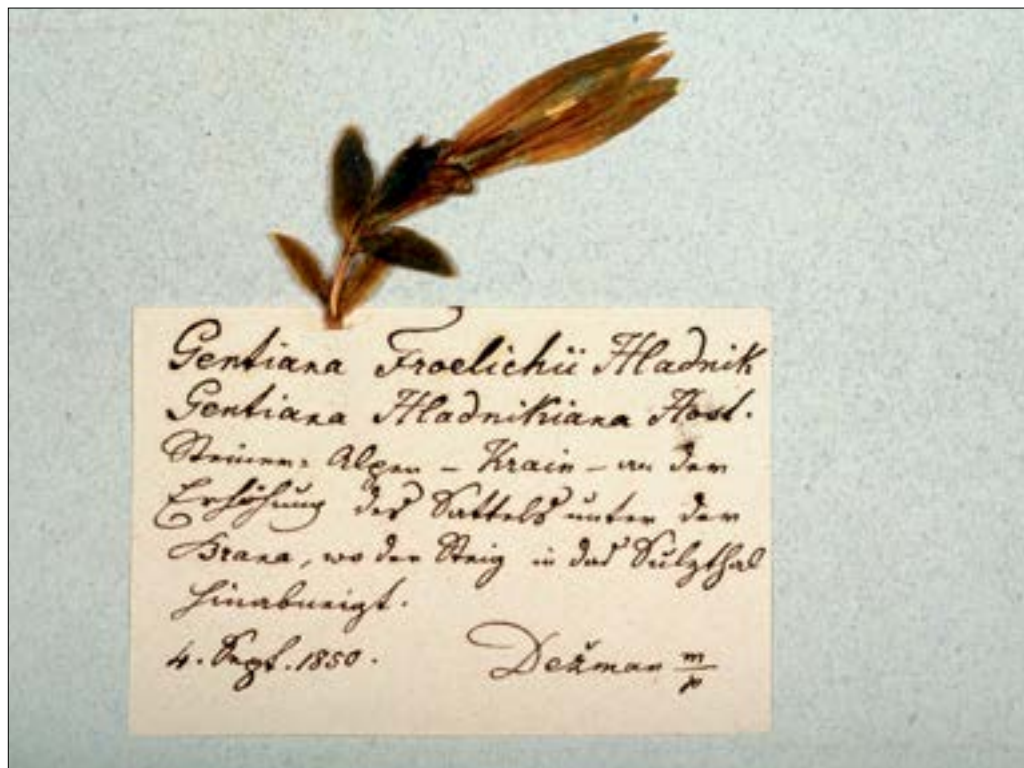 Gentiana Froelichii Hladnik
Gentiana Hladnikiana Host.
Steiner= Alpen – Krain – an der
Erhöhung des Sattels unter der
Brana, wo der Steig in das Sulzthal
hinabneigt.
4. Sept. 1850.
Dežman m/p